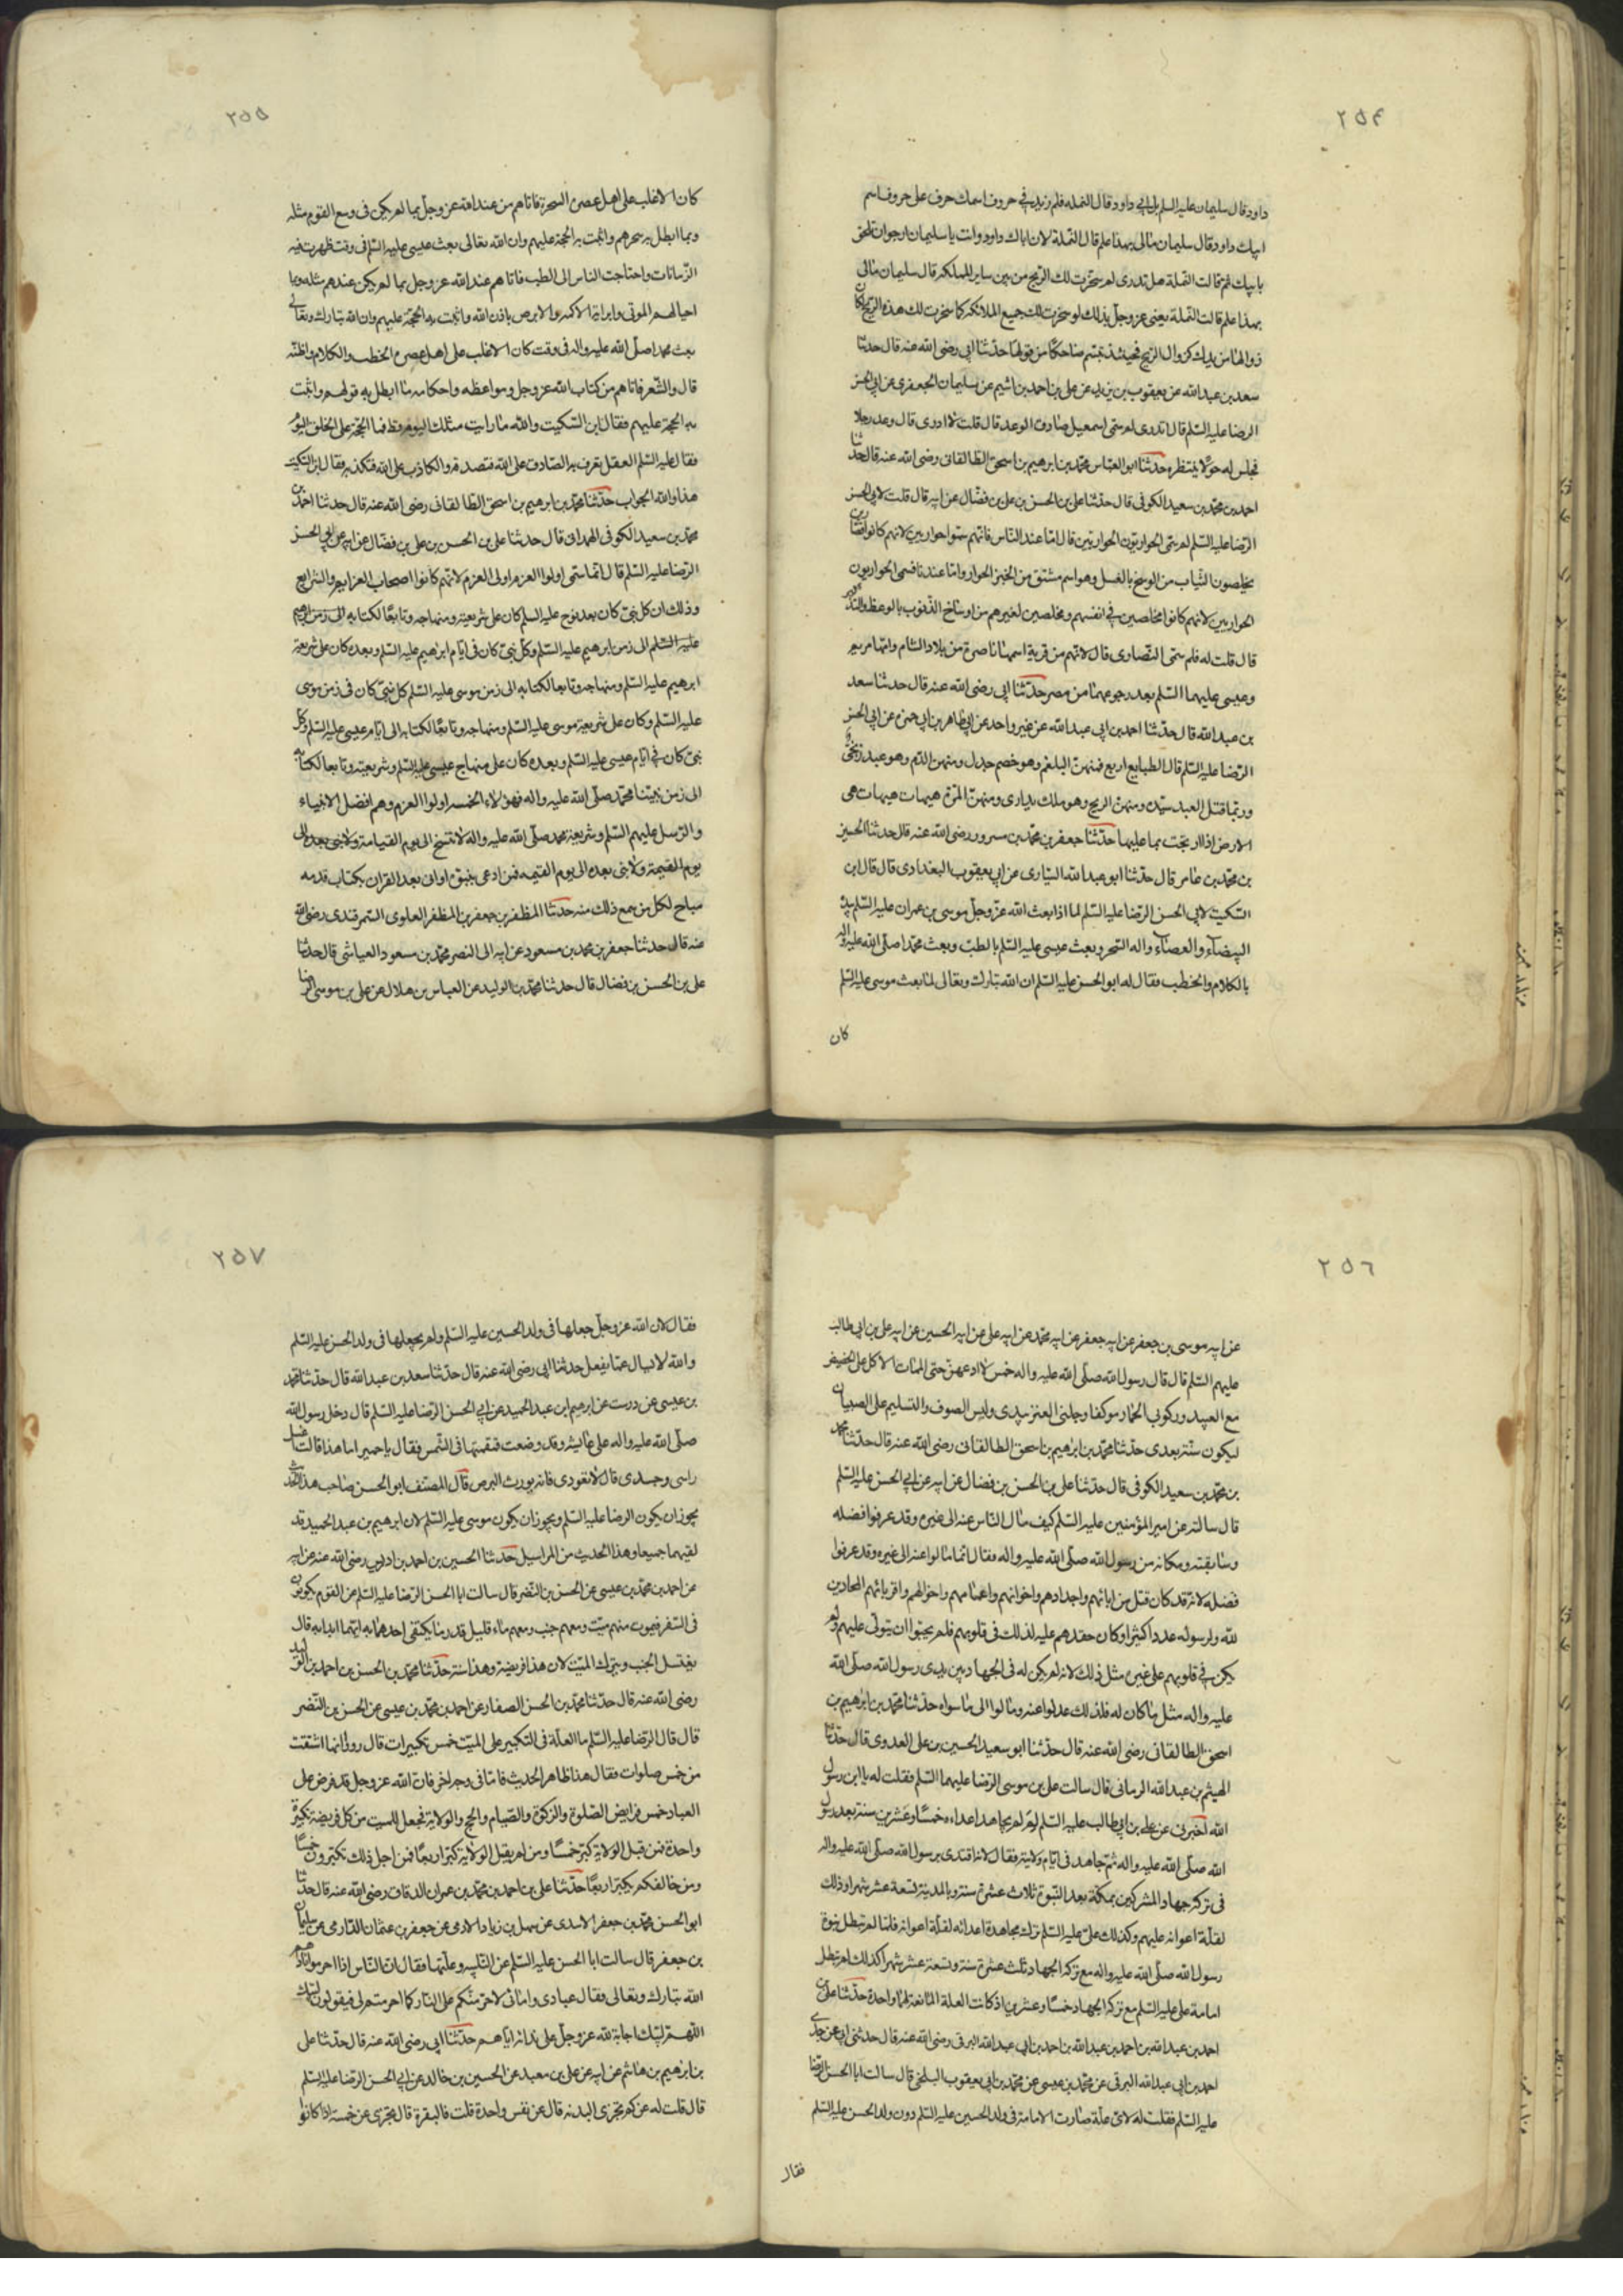 ٢٥٤
داود قال سليمان عليه السلم بل ابي داود قال النمله فلم زيد في حروف اسمك حرف على حروف اسم
ابيك داود قال سليمان مالى بهذا علم قال النملة لان اباك داود وانت يا سليمان ارجوان تلحق
بابيك ثم قالت النملة هل تدرى لم سخرت لك الريح من بين ساير المملكه قال سليمان مالى
بهذا علم قالت النملة يعنى عز وجل بذلك لو سخرت لك جميع الملائكه كما سخرت لك هذه الريح لكان
زوالها من يديك كزوال الريح فحينئذ تبسم ضاحكا من قولها حدثنا ابي رضى الله عنه قال حدثنا
سعد بن عبدالله عن يعقوب بن يزيد عن على بن احمد بن اشيم عن سليمان الجعفرى عن ابي الحسن
الرضا عليه السلم قال تدرى لم سمى اسمعيل صادق الوعد قال قلت لا ادرى قال وعد رجلا
فجلس له حولا ينتظره حدثنا ابو العباس محمد بن ابرهيم بن اسحق الطالقانى رضى الله عنه قال حدثنا
احمد بن محمد بن سعيد الكوفى قال حدثنا على بن الحسن بن على بن فضال عن ابيه قال قلت لابي الحسن
الرضا عليه السلم لم سمى الحواريون الحواريين قال اما عند الناس فانهم سموا حواريين لانهم كانوا قصارين
يخلصون الثياب من الوسخ بالغسل وهو اسم مشتق من الخبز الحوار واما عندنا فسمى الحواريون
الحواريين لانهم كانوا مخلصين في انفسهم ومخلصين لغيرهم من اوساخ الذنوب بالوعظ والتذكير
قال قلت له فلم سمى النصارى قال لانهم من قرية اسمها ناصرة من بلاد الشام وامها مريم
وعيسى عليهما السلم بعد رجوعهما من مصر حدثنا ابي رضى الله عنه قال حدثنا سعد
بن عبدالله قال حدثنا احمد بن ابي عبدالله عن غير واحد عن ابي طاهر بن ابي حمزه عن ابي الحسن
الرضا عليه السلم قال الطبايع اربع فمنهن البلغم وهو خصم جدل ومنهن الدم وهو عبد زنجى
وربما قتل العبد سيده ومنهن الريح وهو ملك يدارى ومنهن المرة هيهات هيهات هى
الارض اذا ارتجت بما عليها حدثنا جعفر بن محمد بن مسرور رضى الله عنه قال حدثنا الحسين
بن محمد بن عامر قال حدثنا ابو عبدالله السيارى عن ابي يعقوب البغدادى قال قال ابن
السكيت لابي الحسن الرضا عليه السلم لماذا بعث الله عز وجل موسى بن عمران عليه السلم بيده
البيضاء والعصاء واله السحر وبعث عيسى عليه السلم بالطب وبعث محمدا صلى الله عليه واله
بالكلام والخطب فقال له ابو الحسن عليه السلم ان الله تبارك وتعالى لما بعث موسى عليه السلم
كان
٢٥٥
كان الاغلب على اهل عصره السحر فاتاهم من عند الله عز وجل بما لم يكن فى وسع القوم مثله
وبما ابطل به سحرهم واثبت به الحجة عليهم وان الله تعالى بعث عيسى عليه السلم فى وقت ظهرت فيه
الزمانات واحتاجت الناس الى الطب فاتاهم عند الله عز وجل بما لم يكن عندهم مثله وبما
احيا لهم الموتى وابراية الاكمه والابرص باذن الله واثبت به الحجة عليهم وان الله تبارك وتعالى
بعث محمدا صلى الله عليه واله فى وقت كان الاغلب على اهل عصره الخطب والكلام واظنه
قال والشعر فاتاهم من كتاب الله عز وجل ومواعظه واحكامه ما ابطل به قولهم واثبت
به الحجة عليهم فقال ابن السكيت والله ما رايت مثلك اليوم قط فما الحجة على الخلق اليوم
فقال عليه السلم العقل يعرف به الصادق على الله فتصدقه والكاذب على الله فتكذبه فقال ابن السكيت
هذا والله الجواب حدثنا محمد بن ابرهيم بن اسحق الطالقانى رضى الله عنه قال حدثنا احمد بن
محمد بن سعيد الكوفى الهمدانى قال حدثنا على بن الحسن بن على بن فضال عن ابيه عن ابي الحسن
الرضا عليه السلم قال انما سمى اولوا العزم اولى العزم لانهم كانوا اصحاب العزايم والشرايع
وذلك ان كل نبى كان بعد نوح عليه السلم كان على شريعته ومنهاجه وتابعا لكتابه الى زمن ابرهيم
عليه السلم الى زمن ابرهيم عليه السلم وكل نبى كان فى ايام ابرهيم عليه السلم وبعده كان على شريعة
ابرهيم عليه السلم ومنهاجه وتابعا لكتابه الى زمن موسى عليه السلم كل نبى كان فى زمن موسى
عليه السلم وكان على شريعة موسى عليه السلم ومنهاجه وتابعا لكتابه الى ايام عيسى عليه السلم وكل
نبى كان فى ايام عيسى عليه السلم وبعده كان على منهاج عيسى عليه السلم وشريعته وتابعا لكتابه
الى زمن نبينا محمد صلى الله عليه واله فهؤلاء الخمسه اولوا العزم وهم افضل الانبياء
والرسل عليهم السلم وشريعة محمد صلى الله عليه واله لا تنسخ الى يوم القيامة ولا نبى بعده الى
يوم القيمة ولا نبى بعده الى يوم القيمه فمن ادعى بنبوة او اتى بعد القران بكتاب فدمه
مباح لكل من سمع ذلك منه حدثنا المظفر بن جعفر بن المظفر العلوى السمرقندى رضى الله
عنه قال حدثنا جعفر بن محمد بن مسعود عن ابيه الى النصر محمد بن مسعود العياشى قال حدثنا
على بن الحسن بن فضال قال حدثنا محمد بن الوليد عن العباس بن هلال عن على بن موسى الرضا
٢٥٦
عن ابيه موسى بن جعفر عن ابيه جعفر عن ابيه محمد عن ابيه على عن ابيه الحسين عن ابيه على بن ابي طالب
عليهم السلم قال قال رسول الله صلى الله عليه واله خمس لا ادعهن حتى الممات الاكل على الحضيض
مع العبيد وركوبى الحمار موكفا وحلبى العنز بيدى ولبس الصوف والتسليم على الصبيان
ليكون سنة بعدى حدثنا محمد بن ابرهيم بن اسحق الطالقانى رضى الله عنه قال حدثنا محمد
بن محمد بن سعيد الكوفى قال حدثنا على بن الحسن بن فضال عن ابيه عن ابي الحسن عليه السلم
قال سالته عن امير المؤمنين عليه السلم كيف مال الناس عنه الى غيره وقد عرفوا فضله
وسابقته ومكانه من رسول الله صلى الله عليه واله فقال انما مالوا عنه الى غيره وقد عرفوا
فضله لانه قد كان قتل من ابائهم واجدادهم واخوانهم واعمامهم واخوالهم واقربائهم المحادين
لله ولرسوله عددا كثيرا وكان حقدهم عليه لذلك فى قلوبهم فلم يحبوا ان يتولى عليهم ولم
يكن في قلوبهم على غيره مثل ذلك لانه لم يكن له فى الجهاد بين يدى رسول الله صلى الله
عليه واله مثل ما كان له فلذلك عدلوا عنه ومالوا الى ما سواه حدثنا محمد بن ابرهيم بن
اسحق الطالقانى رضى الله عنه قال حدثنا ابو سعيد الحسين بن على العدوى قال حدثنا
الهيثم بن عبدالله الرمانى قال سالت على بن موسى الرضا عليهما السلم فقلت له يا ابن رسول
الله اخبرنى عن على بن ابي طالب عليه السلم لم لم يجاهد اعداءه خمسا وعشرين سنة بعد رسول
الله صلى الله عليه واله ثم جاهد فى ايام ولايته فقال لانه اقتدى برسول الله صلى الله عليه واله
فى تركه جهاد المشركين بمكة بعد النبوة ثلاث عشرة سنة وبالمدينة تسعة عشر شهرا وذلك
لقلة اعوانه عليهم وكذلك على عليه السلم ترك مجاهدة اعدائه لقلة اعوانه فلما لم تبطل نبوة
رسول الله صلى الله عليه واله مع تركه الجهاد ثلث عشرة سنة وتسعة عشر شهرا كذلك لم تبطل
امامة على عليه السلم مع تركه الجهاد خمسا وعشرين اذ كانت العلة المانعة لهما واحدة حدثنا على بن
احمد بن عبدالله بن احمد بن عبدالله بن احمد بن ابي عبدالله البرقى رضى الله عنه قال حدثنى ابي عن جدى
احمد بن ابي عبدالله البرقى عن محمد بن عيسى عن محمد بن ابي يعقوب البلخى قال سالت ابا الحسن الرضا
عليه السلم فقلت له لاى علة صارت الامامة فى ولد الحسين عليه السلم دون ولد الحسن عليه السلم
فقال
٢٥٧
فقال لان الله عز وجل جعلها فى ولد الحسين عليه السلم ولم يجعلها فى ولد الحسن عليه السلم
والله لا يسال عما يفعل حدثنا ابي رضى الله عنه قال حدثنا سعد بن عبدالله قال حدثنا محمد
بن عيسى عن درست عن ابرهيم ابن عبد الحميد عن ابي الحسن الرضا عليه السلم قال دخل رسول الله
صلى الله عليه واله على عايشه وقد وضعت قمقمتها فى الشمس فقال يا حميرا ما هذا قالت اغسل
راسى وجسدى قال لا تعودى فانه يورث البرص قال المصنف ابو الحسن صاحب هذا الحديث
يجوز ان يكون الرضا عليه السلم ويجوز ان يكون موسى عليه السلم لان ابرهيم بن عبد الحميد قد
لقيهما جميعا وهذا الحديث من المراسيل حدثنا الحسين بن احمد بن ادريس رضى الله عنه عن ابيه
عن احمد بن محمد بن عيسى عن الحسن بن النضر قال سالت ابا الحسن الرضا عليه السلم عن القوم يكونون
فى السفر فيموت منهم ميت ومعهم جنب ومعهم ماء قليل قدر ما يكتفى احدهما به ايهما ابدا به قال
يغتسل الجنب ويترك الميت لان هذا فريضة وهذا سنة حدثنا محمد بن الحسن بن احمد بن الوليد
رضى الله عنه قال حدثنا محمد بن الحسن الصفار عن احمد بن محمد بن عيسى عن الحسن بن النضر
قال قال الرضا عليه السلم ما العلة فى التكبير على الميت خمس تكبيرات قال رووا انها اشتقت
من خمس صلوات فقال هذا ظاهر الحديث فاما فى وجه اخر فان الله عز وجل قد فرض على
العباد خمس فرايض الصلوة والزكوة والصيام والحج والولاية فجعل للميت من كل فريضة تكبيرة
واحدة فمن قبل الولاية كبر خمسا ومن لم يقبل الولاية كبر اربعا فمن اجل ذلك تكبرون خمسا
ومن خالفكم يكبر اربعا حدثنا على بن احمد بن محمد بن عمران الدقاق رضى الله عنه قال حدثنا
ابو الحسن محمد بن جعفر الاسدى عن سهل بن زياد الادمى عن جعفر بن عثمان الدارمى عن سليمان
بن جعفر قال سالت ابا الحسن عليه السلم عن التلبيه وعلتها فقال ان الناس اذا احرموا ناداهم
الله تبارك وتعالى فقال عبادى وامائى لاحرمنكم على النار كما احرمتم لى فيقولون لبيك
اللهم لبيك اجابة لله عز وجل على ندائه اياهم حدثنا ابي رضى الله عنه قال حدثنا على
بن ابرهيم بن هاشم عن ابيه عن على بن معبد عن الحسين بن خالد عن ابي الحسن الرضا عليه السلم
قال قلت له عن كم تجزى البدنه قال عن نفس واحدة قلت فالبقرة قال تجزى عن خمسة اذا كانوا